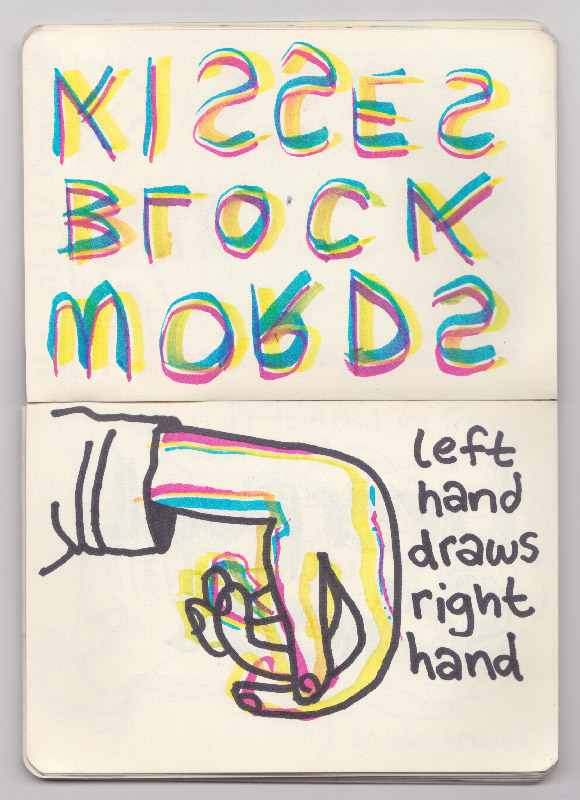 KISSES
BLOCK
WORDS
left
hand
draws
right
hand